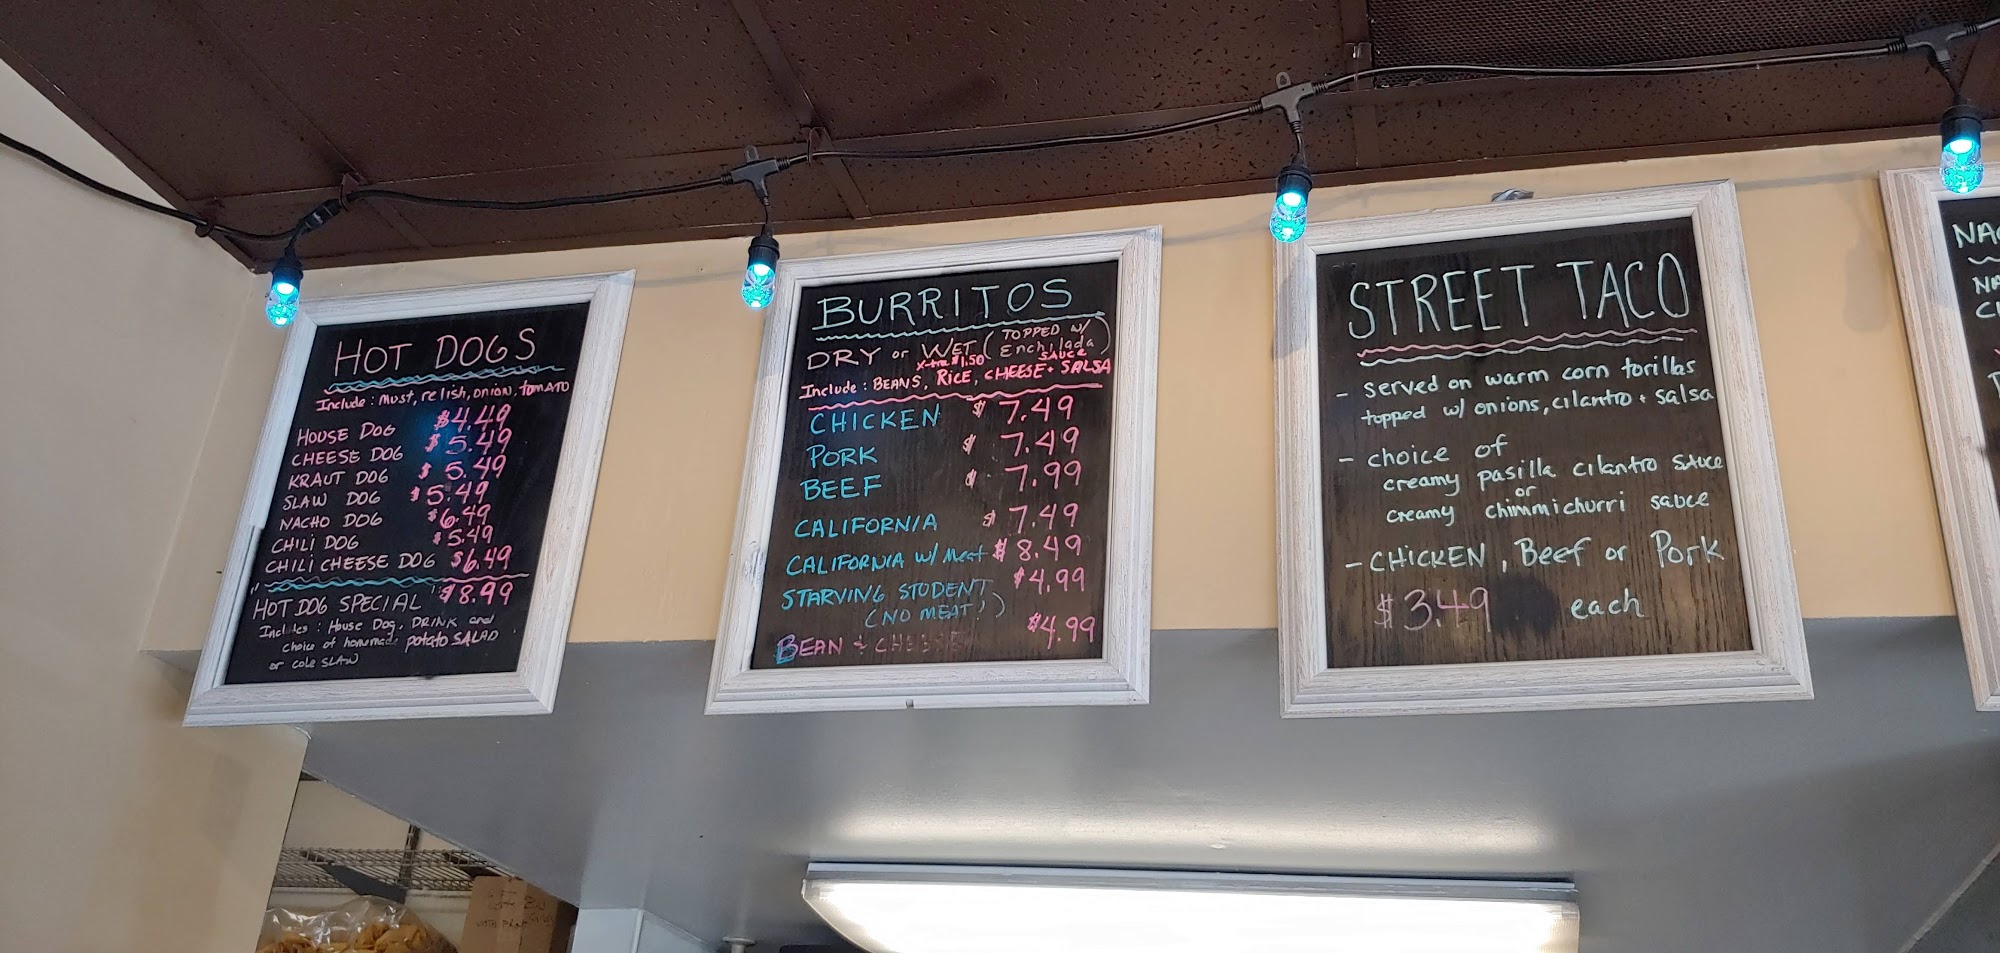 HOT DOGS
Include: must, relish, onion, tomato
HOUSE DOG $4.49
CHEESE DOG $5.49
KRAUT DOG $5.49
SLAW DOG $5.49
NACHO DOG $6.49
CHILI DOG $5.49
CHILI CHEESE DOG $6.49
HOT DOG SPECIAL $8.99
Includes: House Dog, DRINK and
choice of homemade potato SALAD
or cole SLAW
BURRITOS
DRY or WET (TOPPED w/ Enchilada SAUCE)
x-tra $1.50
Include: BEANS, RICE, CHEESE + SALSA
CHICKEN $7.49
PORK $7.49
BEEF $7.99
CALIFORNIA $7.49
CALIFORNIA w/ Meat $8.49
STARVING STUDENT $4.99
(NO MEAT!)
BEAN + CHEESE $4.99
STREET TACO
- served on warm corn torillas
topped w/ onions, cilantro + salsa
- choice of
creamy pasilla cilantro sauce
or
creamy chimmichurri sauce
- CHICKEN, Beef or Pork
$3.49 each